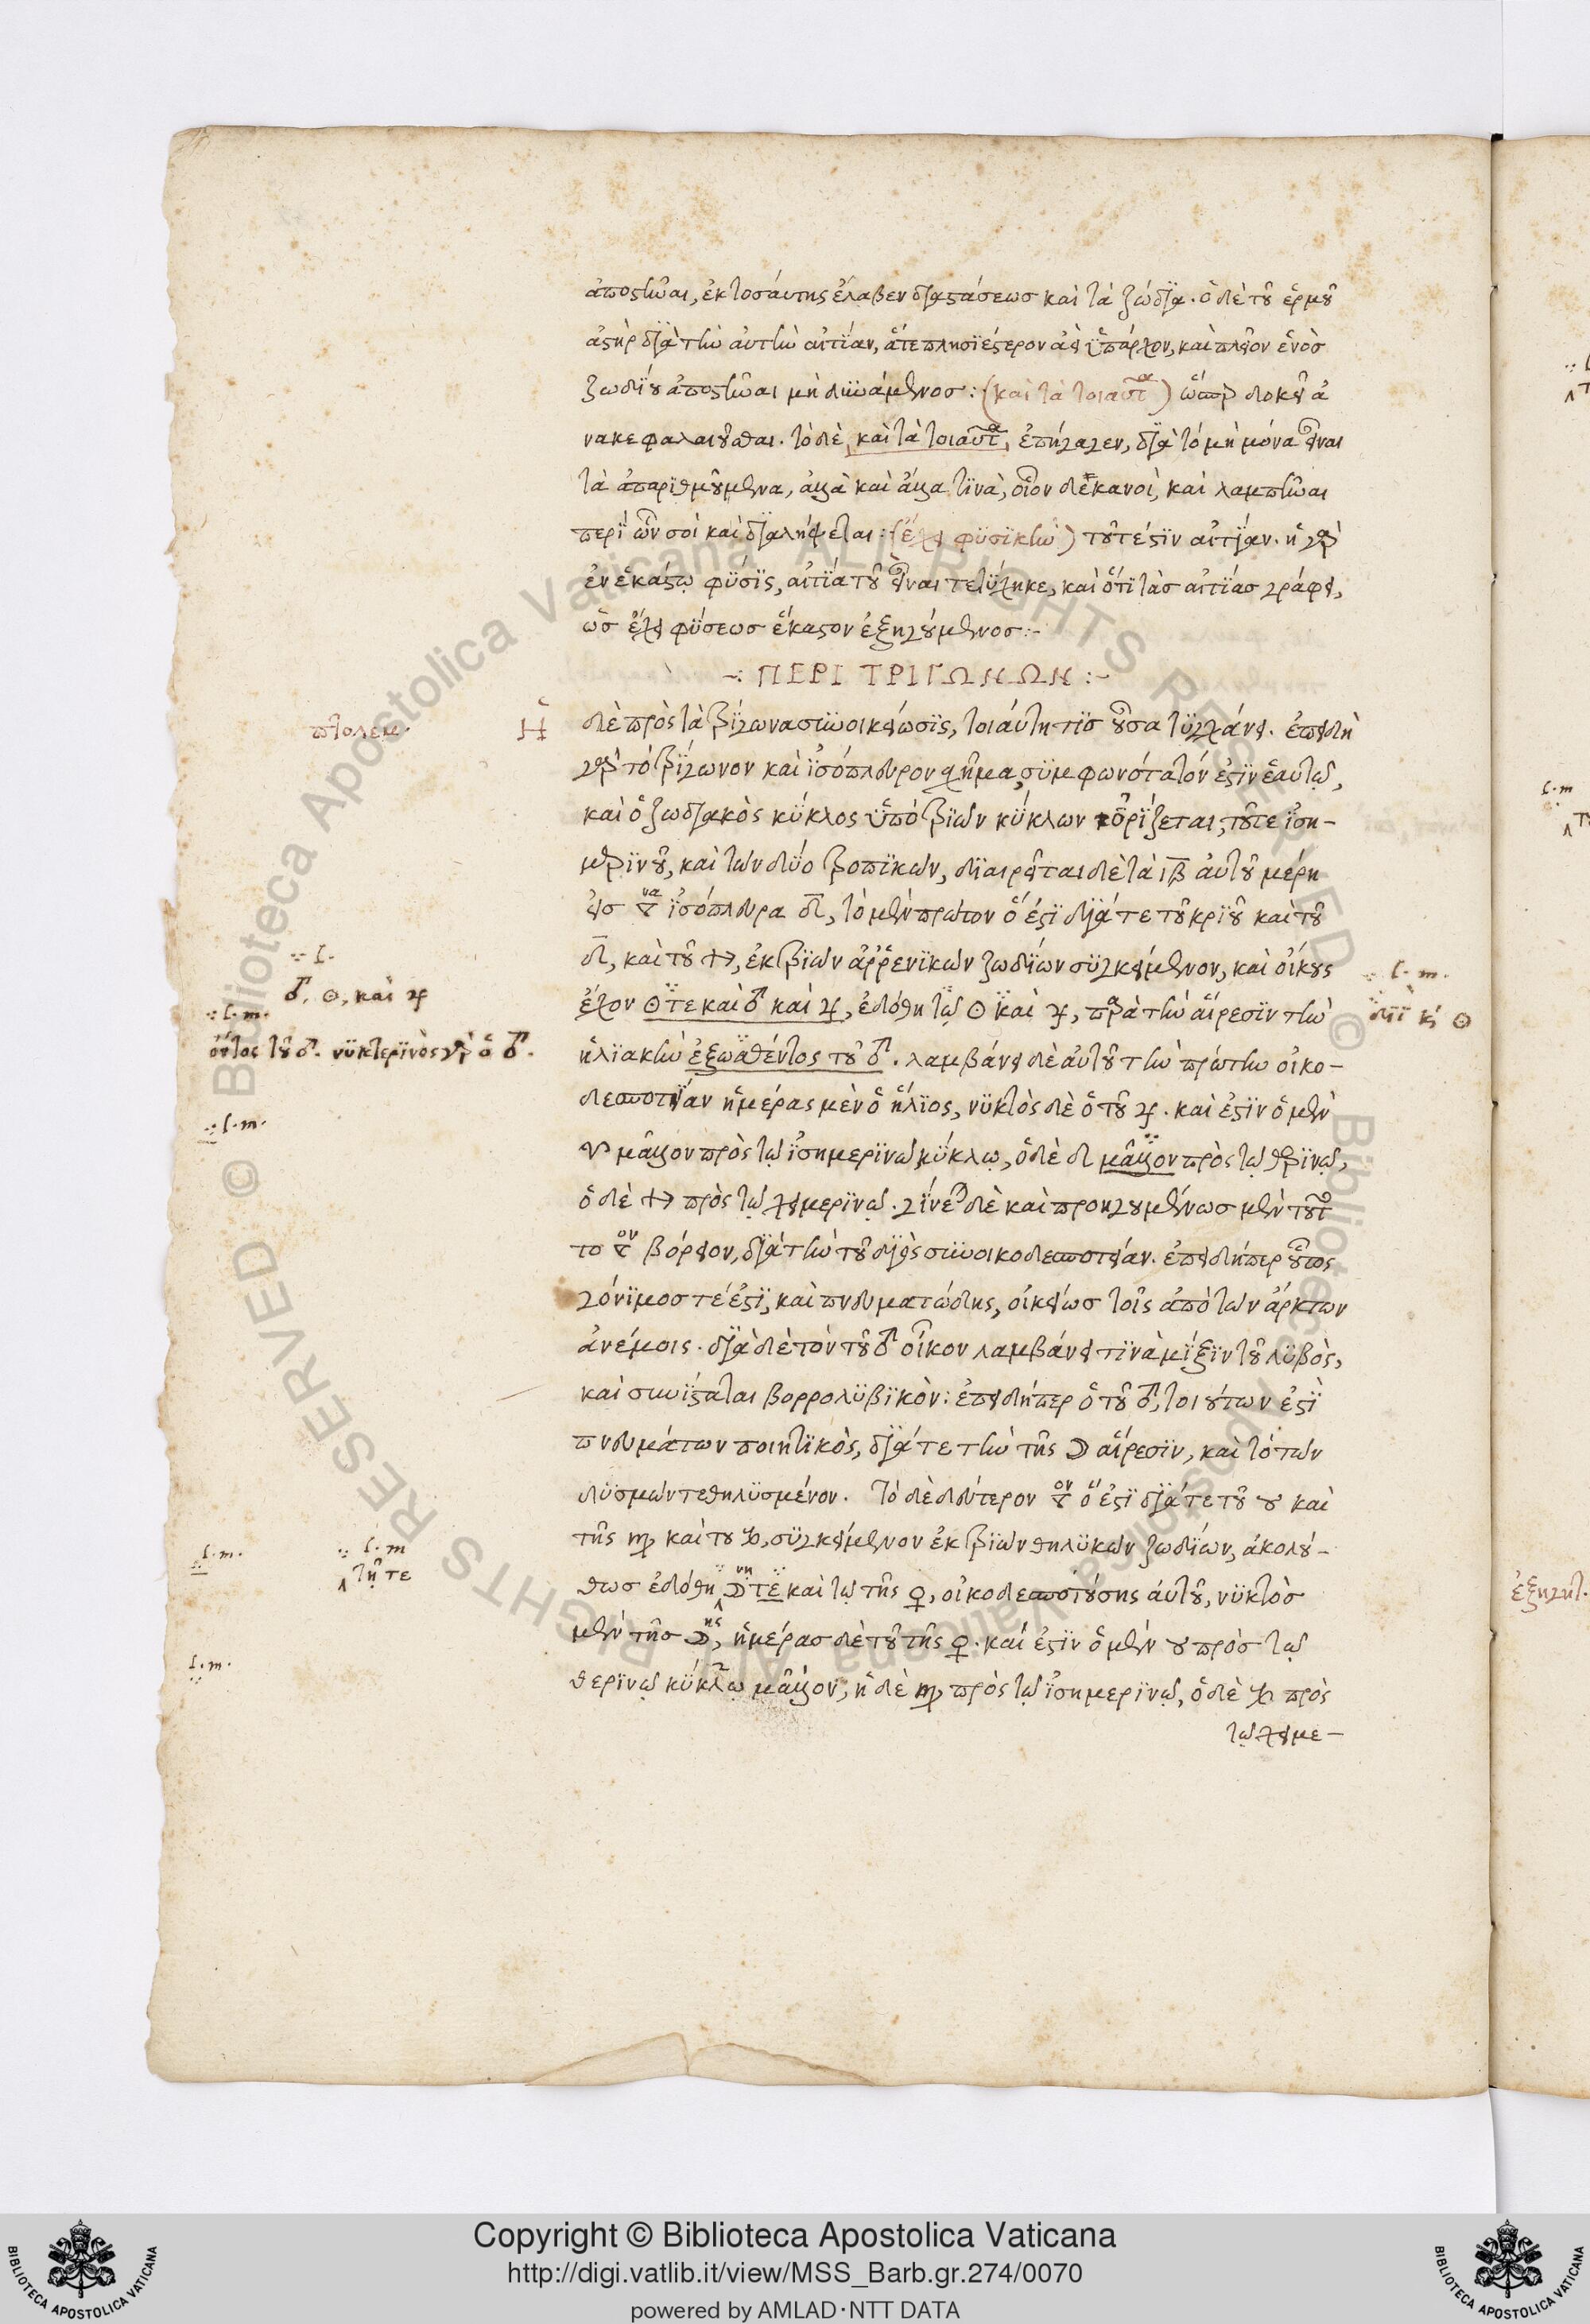 ἀποστῆναι, ἐκ τοσαύτης ἔλαβεν διαστάσεως καὶ τὰ ζώδια. ὁ δὲ τοῦ ἑρμοῦ
ἀστὴρ διὰ τὴν αὐτὴν αἰτίαν, ἅτε πλησιέστερον ἀεὶ ὑπάρχον, καὶ πλεῖον ἑνὸς
ζωδίου ἀποστῆναι μὴ δυνάμενος: (καὶ τὰ τοιαῦτα) ὥσπερ δοκεῖ ἀ
νακεφαλαιοῦσθαι. τὸ δὲ, καὶ τὰ τοιαῦτα, ἐπήγαγεν, διὰ τὸ μὴ μόνα εἶναι
τὰ ἀπαριθμούμενα, ἀλλὰ καὶ ἄλλα τινὰ, οἷον δεκανοὶ, καὶ λαμπῆναι
περὶ ὧν σοὶ καὶ διαλήψεται: (ἔχει φυσικὴν) τουτέστιν αἰτίαν. ἡ γὰρ
ἐν ἑκάστῳ φύσις, αἰτία τοῦ εἶναι τετύχηκε, καὶ ὅτι τὰς αἰτίας γράφει,
ὡς ἔχει φύσεως ἕκαστον ἐξηγούμενος:-
-: ΠΕΡΙ ΤΡΙΓΩΝΩΝ :-
πτολεμ.
Ἡ δὲ πρὸς τὰ τρίγωνα συνοικείωσις, τοιαύτη τὶς οὖσα τυγχάνει. ἐπειδὴ
γὰρ τὸ τρίγωνον καὶ ἰσόπλευρον σχῆμα, συμφωνότατόν ἐστιν ἑαυτῷ,
καὶ ὁ ζωδιακὸς κύκλος ὑπὸ τριῶν κύκλων ὁρίζεται, τοῦτε ἰση-
μερινοῦ, καὶ τῶν δύο τροπικῶν, διαιρεῖται δὲ τὰ ιβ αὐτοῦ μέρη
εἰς △να ἰσόπλευρα δ, τὸ μὲν πρῶτον ὅ ἐστι διά τε τοῦ κριοῦ καὶ τοῦ
♌, καὶ τοῦ ♐, ἐκ τριῶν ἀῤῥενικῶν ζωδίων συγκείμενον, καὶ οἴκους
·:· l.
♂. ☉, καὶ ♃
·:· l. m.
διῒ κὶ ☉
ἔχον ☉ τε καὶ ♂ καὶ ♃, ἐδόθη τῷ ☉ καὶ ♃, παρὰ τὴν αἵρεσιν τὴν
·:· l. m.
ὄντος τοῦ ♂. νυκτερινὸς γὰρ ὁ ♂.
ἡλιακὴν ἐξωσθέντος τοῦ ♂. λαμβάνει δὲ αὐτοῦ τὴν πρώτην οἰκο-
δεσποτείαν ἡμέρας μὲν ὁ ἥλιος, νυκτὸς δὲ ὁ τοῦ ♃. καὶ ἐστιν ὁ μὲν
·:· l. m.
♈ μᾶλλον πρὸς τῷ ἰσημερινῷ κύκλῳ, ὁ δὲ ♌ μᾶλλον πρὸς τῷ θερινῷ,
ὁ δὲ ♐ πρὸς τῷ χειμερινῷ. γίνεται δὲ καὶ προηγουμένως μὲν τοῦτο
το △ον βόρειον, διὰ τὴν τοῦ διὸς συνοικοδεσποτείαν. ἐπειδήπερ οὗτος
γόνιμος τέ ἐστι, καὶ πνευματώδης, οἰκείως τοῖς ἀπὸ τῶν ἄρκτων
ἀνέμοις. διὰ δὲ τὸν τοῦ ♂ οἶκον λαμβάνει τινὰ μίξιν τοῦ λυβὸς,
καὶ συνίσταται βορρολυβικὸν: ἐπειδήπερ ὁ τοῦ ♂, τοιούτων ἐστὶ
πνευμάτων ποιητικὸς, διά τε τὴν τῆς ☽ αἵρεσιν, καὶ τὸ τῶν
δυσμῶν τεθηλυσμένον. Τὸ δὲ δεύτερον △ον ὅ ἐστι διά τε τοῦ ♉ καὶ
τῆς ♍ καὶ του ♑, συγκείμενον ἐκ τριῶν θηλυκῶν ζωδίων, ἀκολού-
l. m.
·:· l. m
τῇ τε
θως ἐδόθη ☽νη τε καὶ τῷ τῆς ♀, οἰκοδεσποτούσης αὐτοῦ, νυκτὸς
μὲν τῆς ☽ης, ἡμέρας δὲ τοῦ τῆς ♀. καί ἐστιν ὁ μὲν ♉ πρὸς τῷ
l. m.
θερινῷ κύκλῳ μᾶλλον, ἡ δὲ ♍ πρὸς τῷ ἰσημερινῷ, ὁ δὲ ♑ πρὸς
τῷ χειμε-
l. m
ἐξηγητ.
Copyright © Biblioteca Apostolica Vaticana
http://digi.vatlib.it/view/MSS_Barb.gr.274/0070
powered by AMLAD·NTT DATA
BIBLIOTECA APOSTOLICA VATICANA
BIBLIOTECA APOSTOLICA VATICANA
Biblioteca Apostolica Vaticana ALL RIGHTS RESERVED ©